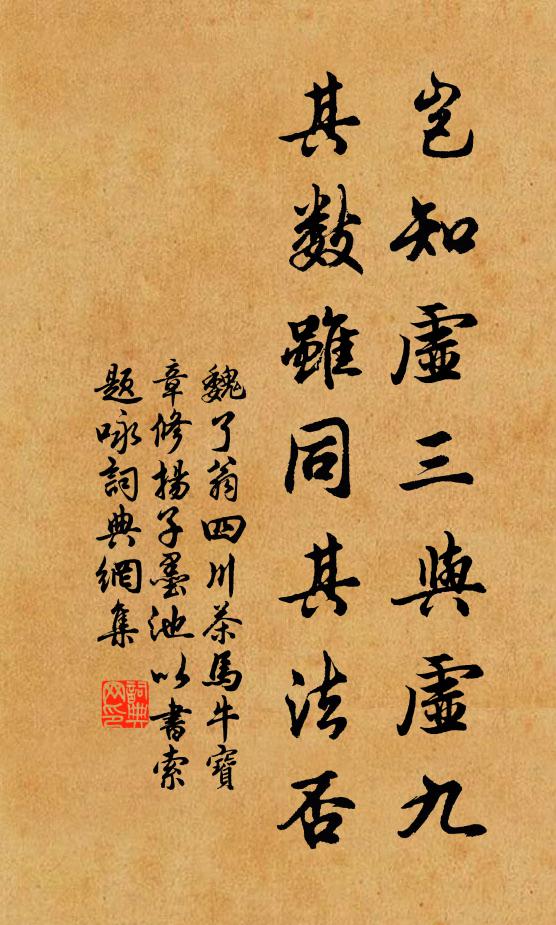 豈知虛三與虛九
其數雖同其法否
魏了翁四川茶馬牛寶
章修揚子墨池以書索
題咏詞典網集
詞典网印